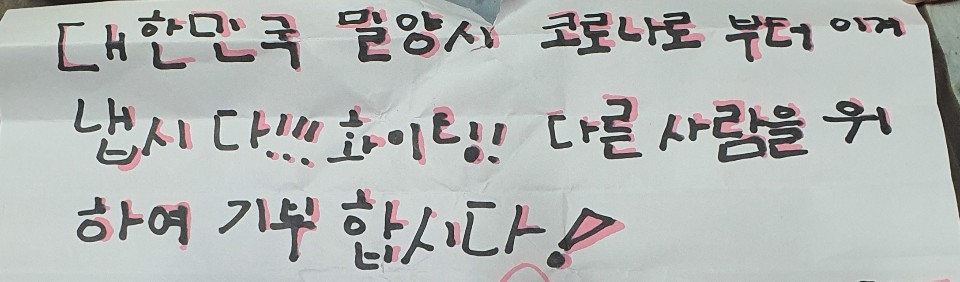 대한민국 밀양시 코로나로 부터 이겨
냅시다!!!! 화이팅!! 다른 사람을 위
하여 기부 합시다!